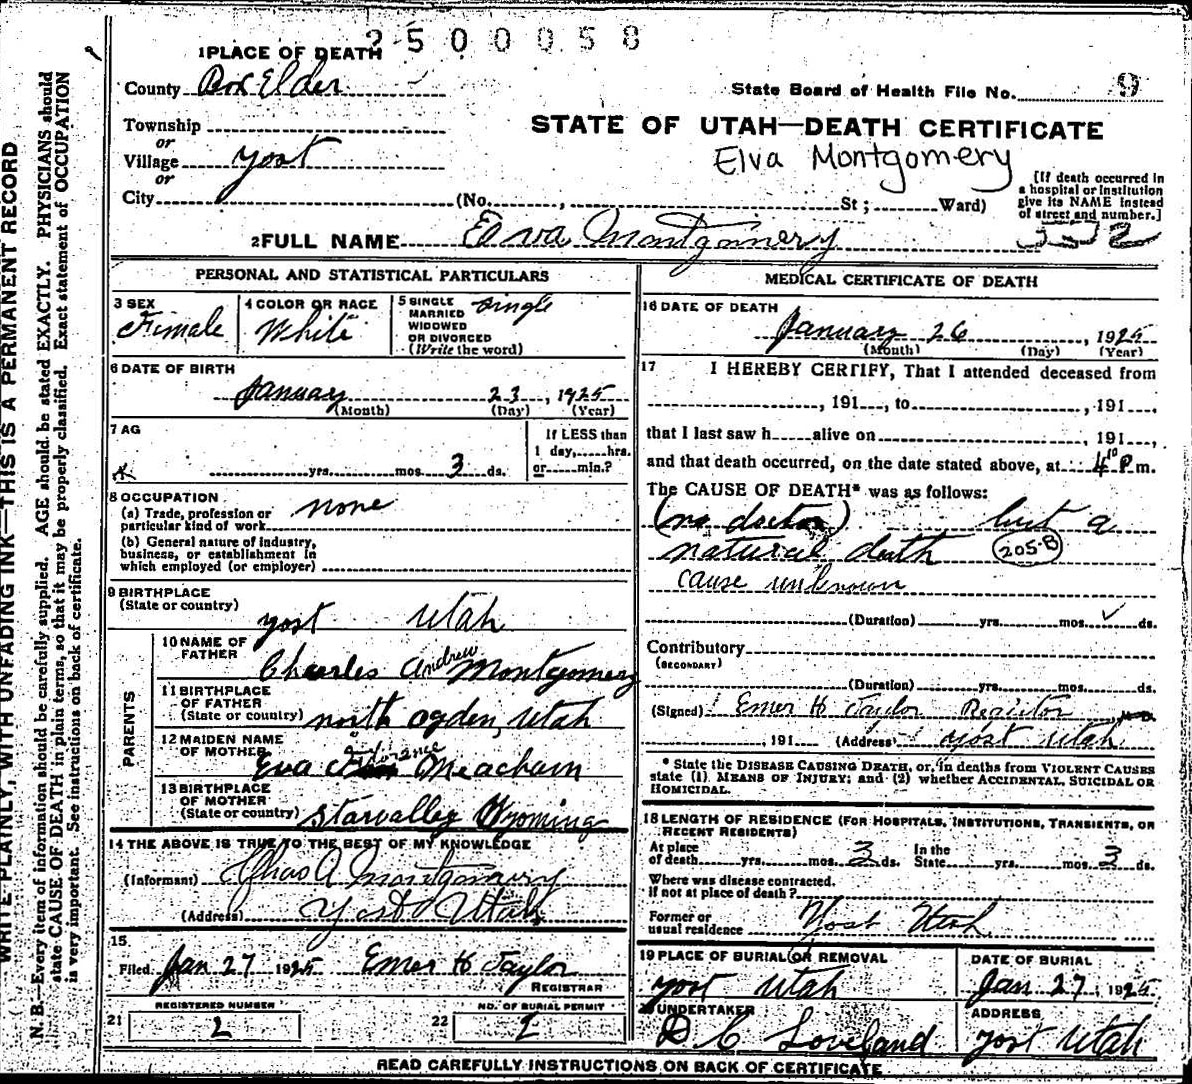 2500058
1 PLACE OF DEATH
County Box Elder
State Board of Health File No. 9
Township
or
Village Yost
or
City (No. , St ; Ward)
STATE OF UTAH—DEATH CERTIFICATE
Elva Montgomery
[If death occurred in
a hospital or institution
give its NAME instead
of street and number.]
2 FULL NAME Elva Montgomery
PERSONAL AND STATISTICAL PARTICULARS
3 SEX
Female
4 COLOR OR RACE
White
5 SINGLE
MARRIED
WIDOWED
OR DIVORCED
(Write the word)
single
6 DATE OF BIRTH
January 23, 1925
(Month) (Day) (Year)
7 AG
yrs. mos. 3 ds.
If LESS than
1 day, hrs.
or min.?
8 OCCUPATION
(a) Trade, profession or
particular kind of work none
(b) General nature of industry,
business, or establishment in
which employed (or employer)
9 BIRTHPLACE
(State or country)
yost Utah
PARENTS
10 NAME OF
FATHER
Charles Andrew Montgomery
11 BIRTHPLACE
OF FATHER
(State or country) north Ogden, Utah
12 MAIDEN NAME
OF MOTHER
Eva Florance Meacham
13 BIRTHPLACE
OF MOTHER
(State or country) Starvalley Wyoming
14 THE ABOVE IS TRUE TO THE BEST OF MY KNOWLEDGE
(Informant) Chas A Montgomery
(Address) Yost Utah
15.
Filed Jan 27 1925 Emer H Taylor
REGISTRAR
REGISTERED NUMBER
21 2
NO. OF BURIAL PERMIT
22 2
MEDICAL CERTIFICATE OF DEATH
16 DATE OF DEATH
January 26, 1925
(Month) (Day) (Year)
17 I HEREBY CERTIFY, That I attended deceased from
, 191 , to , 191 ,
that I last saw h alive on , 191 ,
and that death occurred, on the date stated above, at 4 10 P. m.
The CAUSE OF DEATH* was as follows:
(no doctor) but a
natural death 205-B
cause unknown
(Duration) yrs. mos. ds.
Contributory
(SECONDARY)
(Duration) yrs. mos. ds.
(Signed) Emer H Taylor M.D.
, 191 (Address) Yost Utah
* State the DISEASE CAUSING DEATH, or, in deaths from VIOLENT CAUSES
state (1) MEANS OF INJURY; and (2) whether ACCIDENTAL, SUICIDAL OR
HOMICIDAL.
18 LENGTH OF RESIDENCE (FOR HOSPITALS, INSTITUTIONS, TRANSIENTS, OR
RECENT RESIDENTS)
At place
of death yrs. mos. 3 ds.
In the
State yrs. mos. 3 ds.
Where was disease contracted.
if not at place of death ?
Former or
usual residence Yost Utah
19 PLACE OF BURIAL OR REMOVAL
yost Utah
DATE OF BURIAL
Jan 27, 1925
20 UNDERTAKER
D C Loveland
ADDRESS
yost Utah
READ CAREFULLY INSTRUCTIONS ON BACK OF CERTIFICATE
WRITE PLAINLY, WITH UNFADING INK—THIS IS A PERMANENT RECORD
N. B.—Every item of information should be carefully supplied. AGE should be stated EXACTLY. PHYSICIANS should
state CAUSE OF DEATH in plain terms, so that it may be properly classified. Exact statement of OCCUPATION
is very important. See instructions on back of certificate.